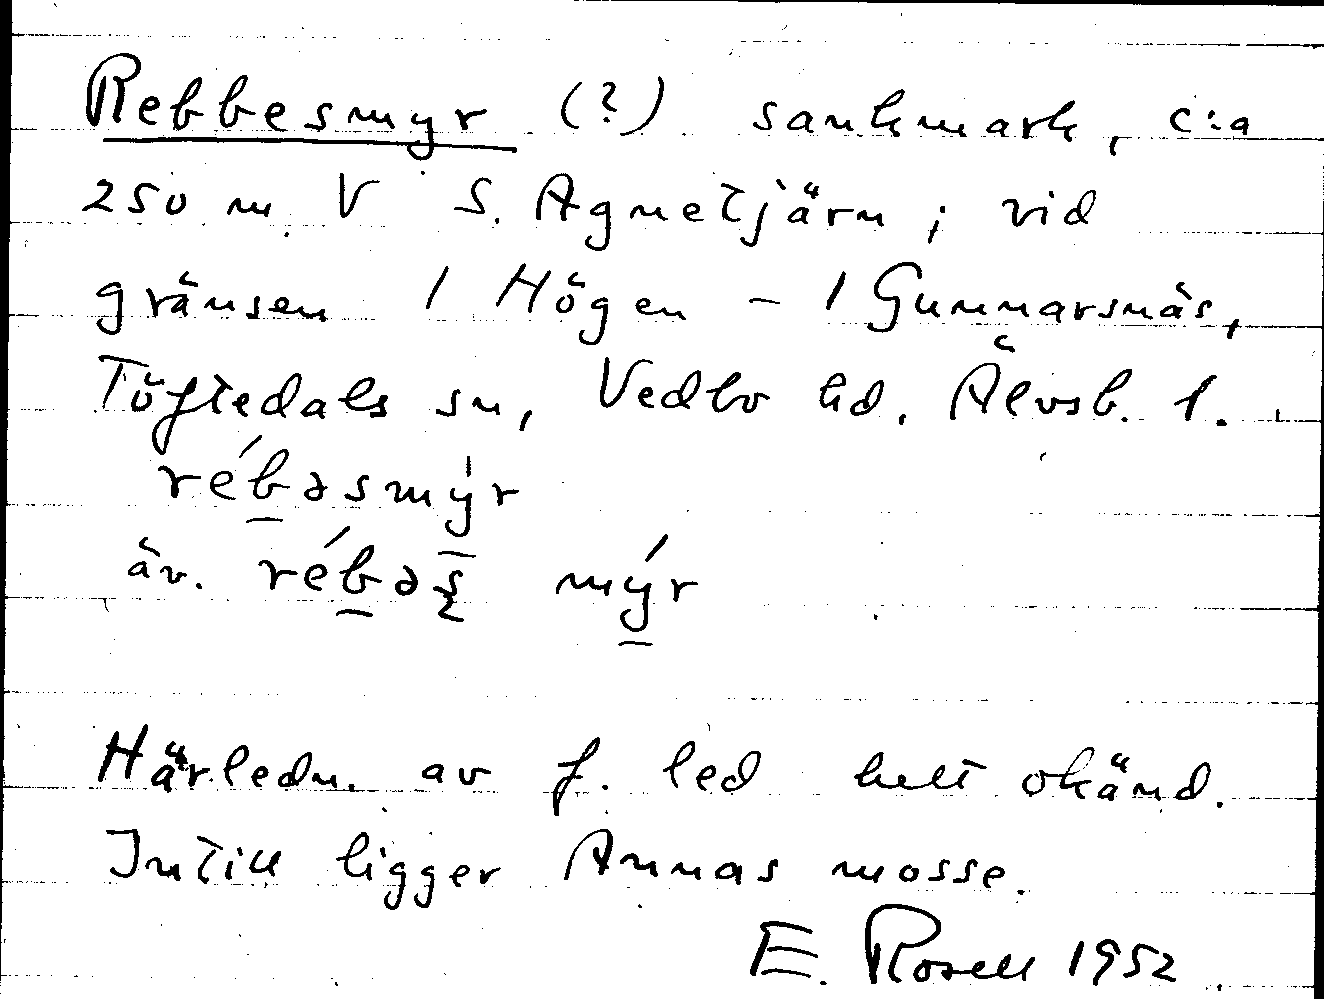 Rebbesmyr (?) sankmark, c:a
250 m V S. Agnetjärn; vid
gränsen 1 Högen - 1 Gunnarsnäs,
Töftedals sn, Vedbo hd. Älvsb. l.
rébəsmýr
äv. rébəs mýr
Härledn. av f. led helt okänd.
Intill ligger Annas mosse.
E. Rosell 1952